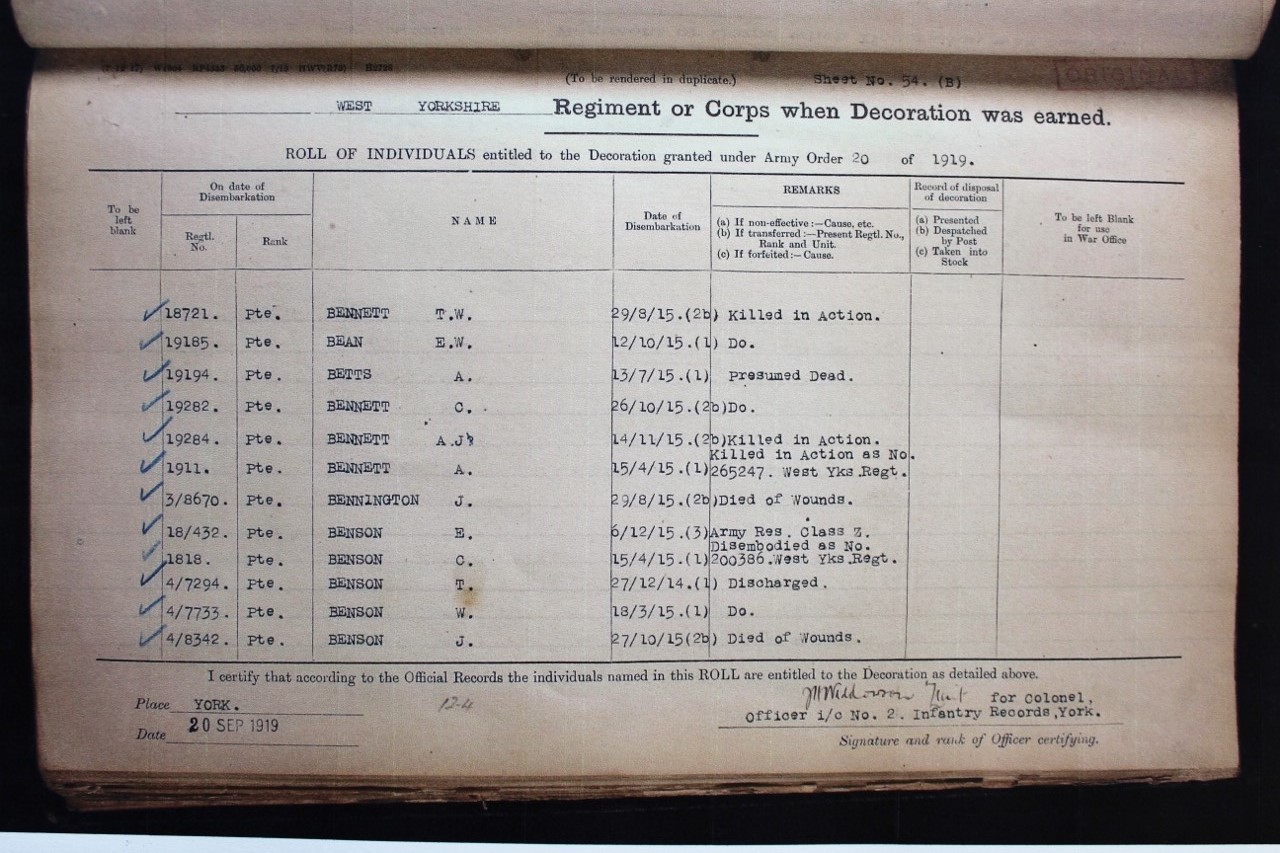 (To be rendered in duplicate.) Sheet No. 54. (B)
ORIGINAL
WEST YORKSHIRE Regiment or Corps when Decoration was earned.
ROLL OF INDIVIDUALS entitled to the Decoration granted under Army Order 20 of 1919.
To be left blank
On date of Disembarkation
Regtl. No.
Rank
NAME
Date of Disembarkation
REMARKS
(a) If non-effective :—Cause, etc.
(b) If transferred :—Present Regtl. No., Rank and Unit.
(c) If forfeited :— Cause.
Record of disposal of decoration
(a) Presented
(b) Despatched by Post
(c) Taken into Stock
To be left Blank for use in War Office
18721. Pte. BENNETT T.W. 29/8/15.(2b) Killed in Action.
19185. Pte. BEAN E.W. 12/10/15.(1) Do.
19194. Pte. BETTS A. 13/7/15.(1) Presumed Dead.
19282. Pte. BENNETT C. 26/10/15.(2b)Do.
19284. Pte. BENNETT A.J. 14/11/15.(2b)Killed in Action.
Killed in Action as No.
1911. Pte. BENNETT A. 15/4/15.(1)265247. West Yks.Regt.
3/8670. Pte. BENNINGTON J. 29/8/15.(2b)Died of Wounds.
18/432. Pte. BENSON E. 6/12/15.(3)Army Res. Class Z.
Disembodied as No.
1818. Pte. BENSON C. 15/4/15.(1)200386.West Yks.Regt.
4/7294. Pte. BENSON T. 27/12/14.(1) Discharged.
4/7733. Pte. BENSON W. 18/3/15.(1) Do.
4/8342. Pte. BENSON J. 27/10/15(2b) Died of Wounds.
I certify that according to the Official Records the individuals named in this ROLL are entitled to the Decoration as detailed above.
Place YORK. 12-4 for Colonel,
Date 20 SEP 1919 Officer i/c No. 2. Infantry Records,York.
Signature and rank of Officer certifying.